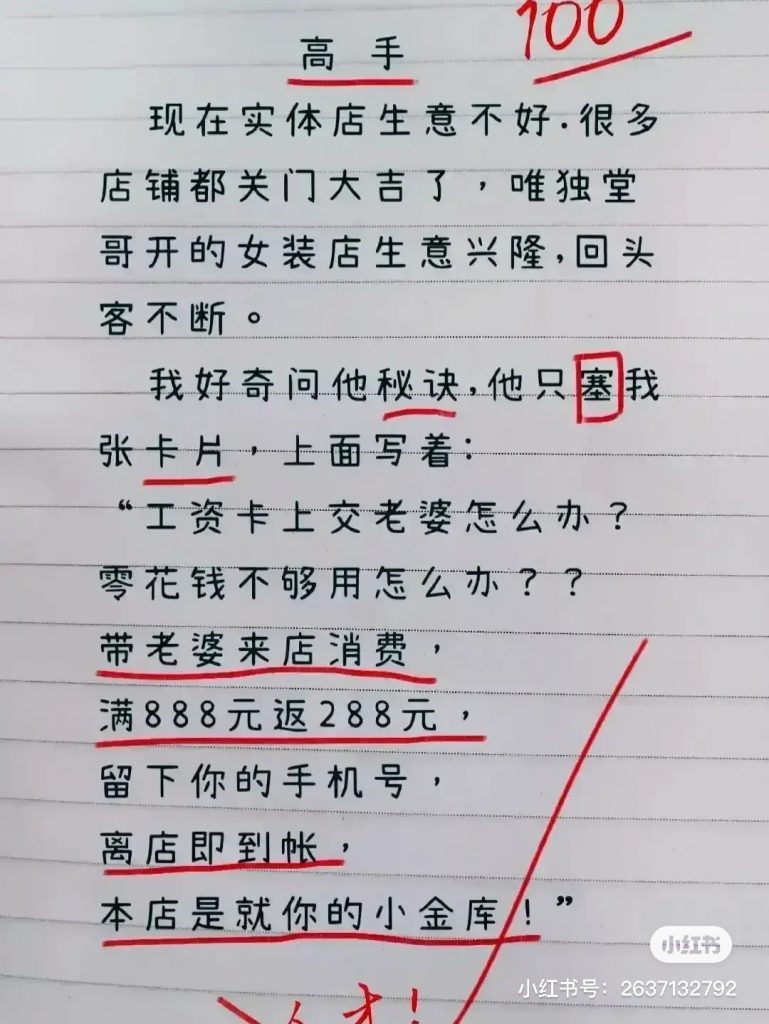 100
高手
现在实体店生意不好.很多
店铺都关门大吉了，唯独堂
哥开的女装店生意兴隆,回头
客不断。
我好奇问他秘诀,他只塞我
张卡片，上面写着:
“工资卡上交老婆怎么办?
零花钱不够用怎么办??
带老婆来店消费，
满888元返288元，
留下你的手机号，
离店即到帐，
本店是就你的小金库!”
小红书
小红书号：2637132792
人才!